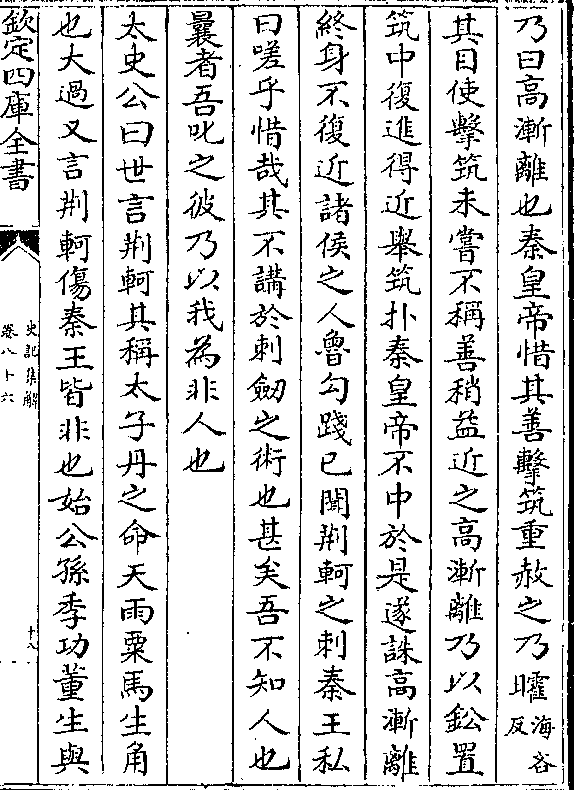 乃曰高漸離也秦皇帝惜其善擊筑重赦之乃矐海各反
其目使擊筑未嘗不稱善稍益近之高漸離乃以鈆置
筑中復進得近舉筑扑秦皇帝不中於是遂誅高漸離
終身不復近諸侯之人魯勾踐已聞荆軻之刺秦王私
曰嗟乎惜哉其不講於刺劒之術也甚矣吾不知人也
曩者吾叱之彼乃以我為非人也
太史公曰世言荆軻其稱太子丹之命天雨粟馬生角
也大過又言荆軻傷秦王皆非也始公孫季功董生與
欽定四庫全書
史記集解
卷八十六
十八